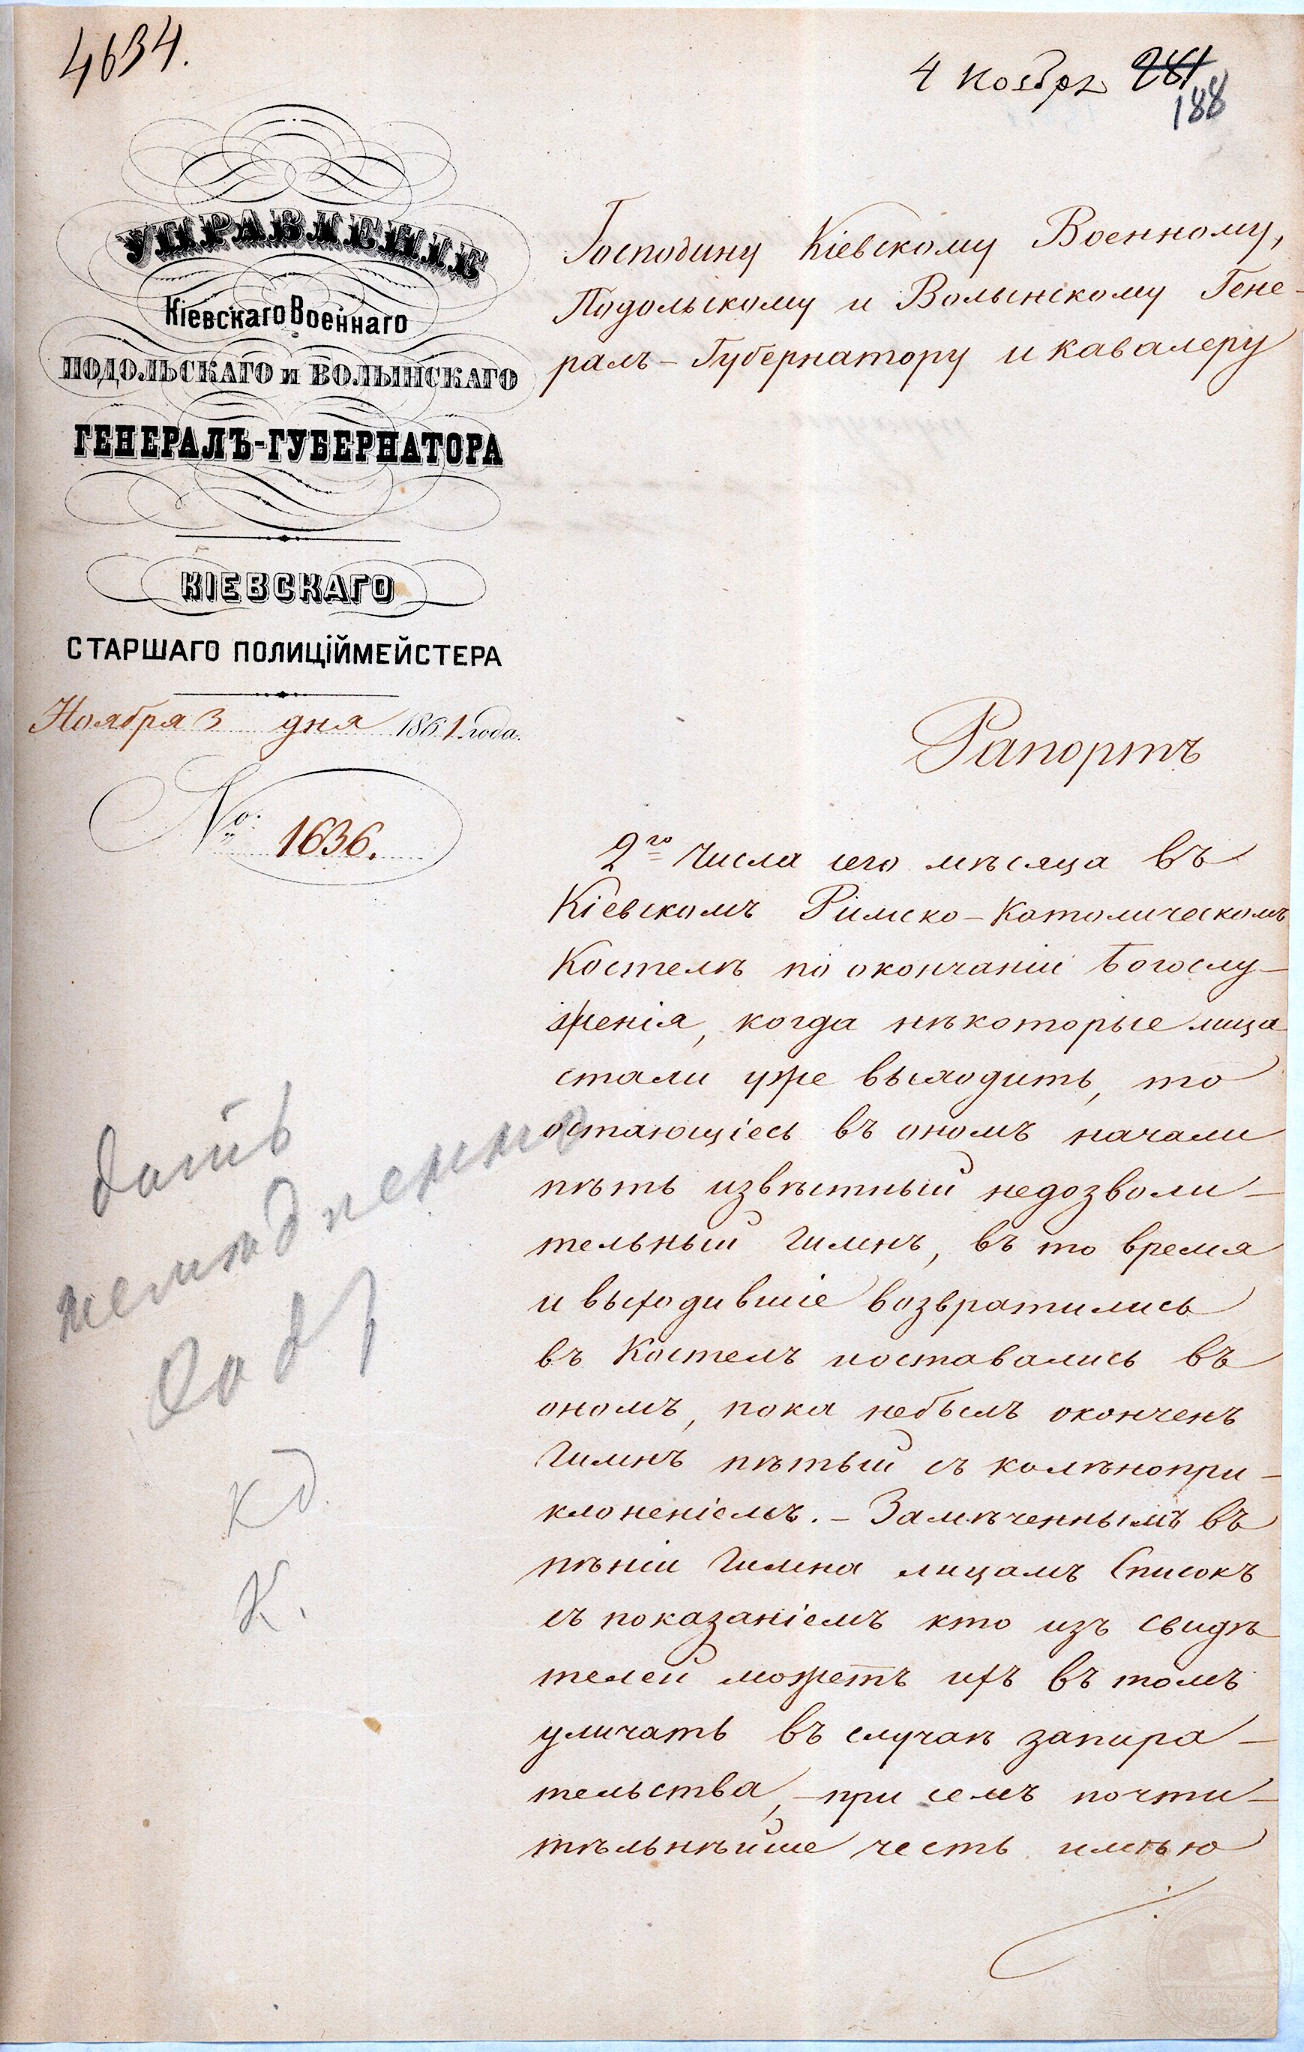 4634.
4 Ноября 281
188
УПРАВЛЕНІЕ
Кіевскаго Военнаго
ПОДОЛЬСКАГО и ВОЛЫНСКАГО
ГЕНЕРАЛЪ-ГУБЕРНАТОРА
КІЕВСКАГО
СТАРШАГО ПОЛИЦІЙМЕЙСТЕРА
Ноября 3 дня 1861 года.
№ 1636.
Господину Кіевскому Военному,
Подольскому и Волынскому Гене-
ралъ-Губернатору и кавалеру
Рапортъ
2го числа сего мѣсяца въ
Кіевскомъ Римско-Католическомъ
Костелѣ по окончаніи Богослу-
женія, когда нѣкоторые лица
стали уже выходить, то
остающіесь въ ономъ начали
пѣть извѣстный недозволи-
тельный Гимнъ, въ то время
и выходившіе возвратились
въ Костелъ иоставались въ
ономъ, пока небылъ оконченъ
Гимнъ пѣтый съ колѣнопри-
клоненіемъ. - Замѣченнымъ въ
пѣніи Гимна лицамъ Списокъ
съ показаніемъ кто изъ свидѣ
телей можетъ ихъ въ томъ
уличать въ случаѣ запира-
тельства, - при семъ почти-
тѣльнѣйше честь имѣю
дать
немедленно
кд.
К.